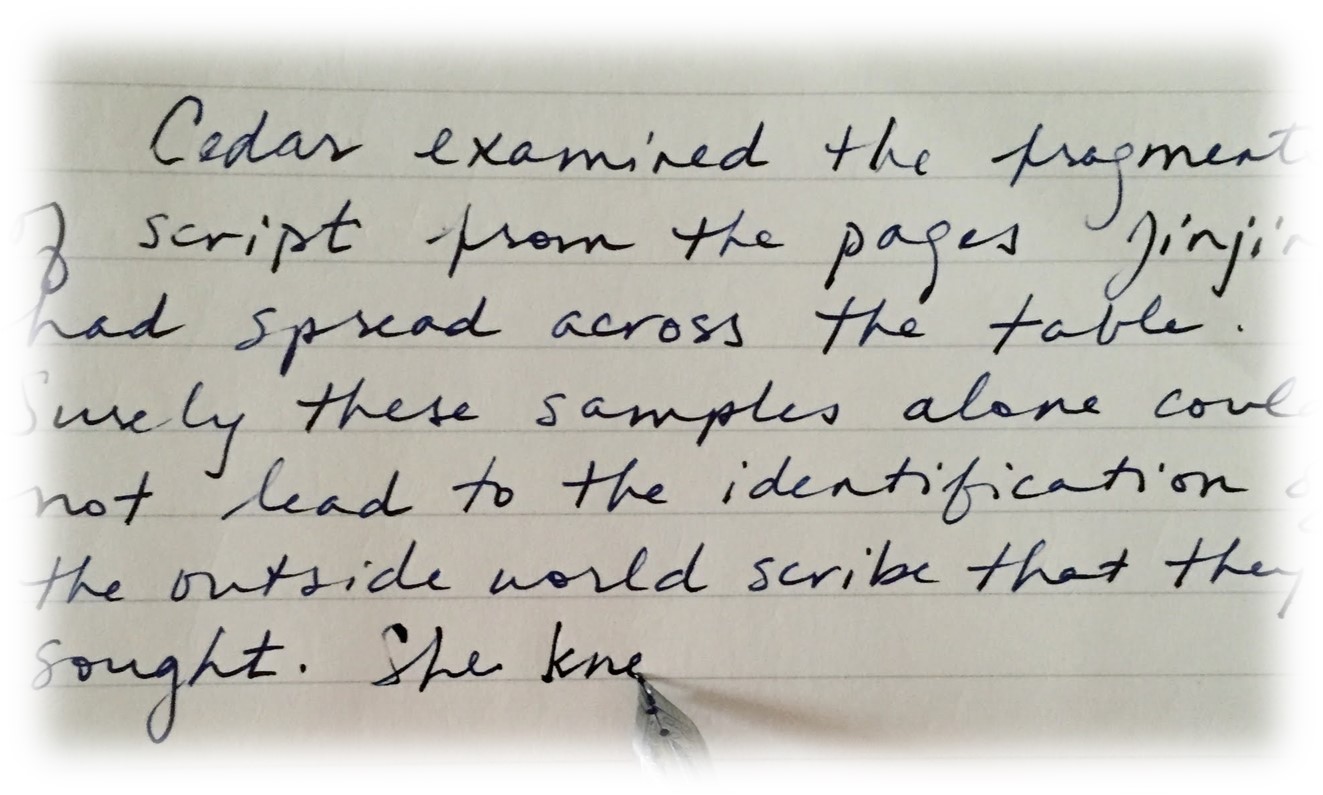 Cedar examined the fragment
of script from the pages Jinjin
had spread across the table.
Surely these samples alone could
not lead to the identification
the outside world scribe that they
sought. She kne